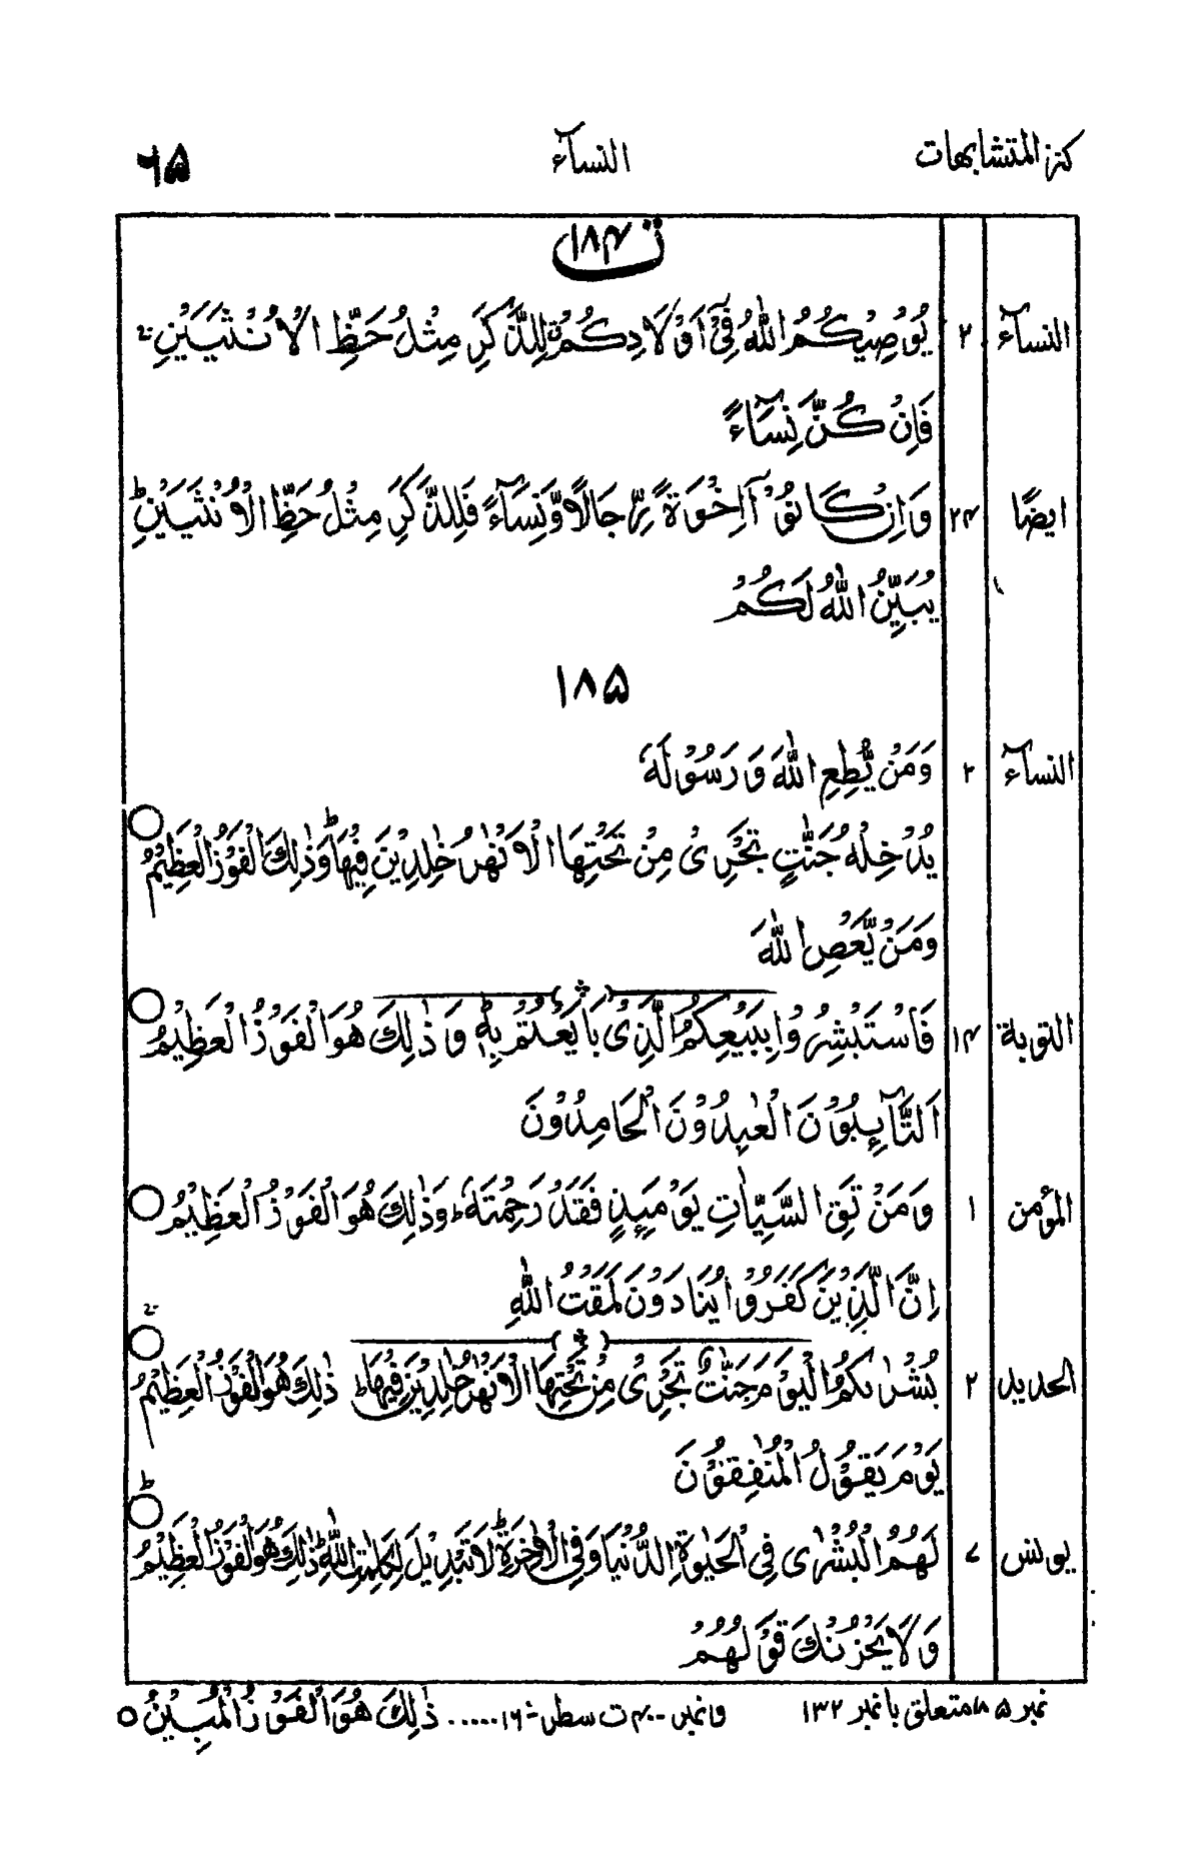 کنز المتشابهات
النسآء
۶۵
۱۸۴ ت
النسآء ۲ يُوْصِيْكُمُ اللّٰهُ فِيْٓ اَوْلَادِكُمْ لِلذَّكَرِ مِثْلُ حَظِّ الْاُنْثَيَيْنِ ۚ
فَاِنْ كُنَّ نِسَآءً
ايضًا ۲۴ وَاِنْ كَانُوْٓا اِخْوَةً رِّجَالًا وَّنِسَآءً فَلِلذَّكَرِ مِثْلُ حَظِّ الْاُنْثَيَيْنِ ؕ
يُبَيِّنُ اللّٰهُ لَكُمْ
۱۸۵
النسآء ۲ وَمَنْ يُّطِعِ اللّٰهَ وَرَسُوْلَهٗ
يُدْخِلْهُ جَنّٰتٍ تَجْرِيْ مِنْ تَحْتِهَا الْاَنْهٰرُ خٰلِدِيْنَ فِيْهَا ؕ وَذٰلِكَ الْفَوْزُ الْعَظِيْمُ ○
وَمَنْ يَّعْصِ اللّٰهَ
التوبة ۱۴ فَاسْتَبْشِرُوْا بِبَيْعِكُمُ الَّذِيْ بَايَعْتُمْ بِهٖ ؕ وَذٰلِكَ هُوَ الْفَوْزُ الْعَظِيْمُ ○
اَلتَّآئِبُوْنَ الْعٰبِدُوْنَ الْحَامِدُوْنَ
المؤمن ۱ وَمَنْ تَقِ السَّيِّاٰتِ يَوْمَئِذٍ فَقَدْ رَحِمْتَهٗ ؕ وَذٰلِكَ هُوَ الْفَوْزُ الْعَظِيْمُ ○
اِنَّ الَّذِيْنَ كَفَرُوْا يُنَادَوْنَ لَمَقْتُ اللّٰهِ
الحديد ۲ بُشْرٰىكُمُ الْيَوْمَ جَنّٰتٌ تَجْرِيْ مِنْ تَحْتِهَا الْاَنْهٰرُ خٰلِدِيْنَ فِيْهَا ؕ ذٰلِكَ هُوَ الْفَوْزُ الْعَظِيْمُ ○ ۚ
يَوْمَ يَقُوْلُ الْمُنٰفِقُوْنَ
يونس ۷ لَهُمُ الْبُشْرٰى فِي الْحَيٰوةِ الدُّنْيَا وَفِي الْاٰخِرَةِ ؕ لَا تَبْدِيْلَ لِكَلِمٰتِ اللّٰهِ ؕ ذٰلِكَ هُوَ الْفَوْزُ الْعَظِيْمُ ○ ؕ
وَلَا يَحْزُنْكَ قَوْلُهُمْ
نمبر ۱۸۵ متعلق بانمبر ۱۳۲ ونمبر ۴۰۰ ت سطر ۱۶ ..... ذٰلِكَ هُوَ الْفَوْزُ الْمُبِيْنُ ○